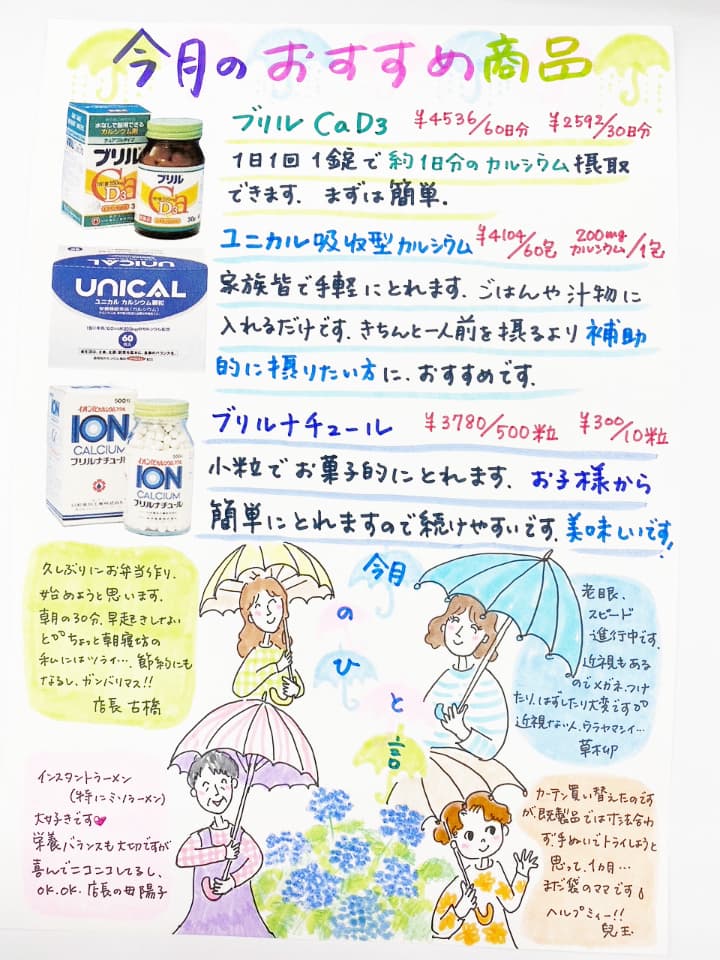 今月のおすすめ商品
ブリル CaD3 ¥4536/60日分 ¥2592/30日分
1日1回1錠で約1日分のカルシウム摂取
できます. まずは簡単.
水なしで服用できる
カルシウム剤
ブリル
Ca
D3
ブリル
Ca
D3
ユニカル吸収型カルシウム ¥4104/60包 200mgカルシウム/1包
家族皆で手軽にとれます. ごはんや汁物に
入れるだけです. きちんと一人前を摂るより補助
的に摂りたい方に、おすすめです.
UNICAL
UNICAL
ユニカル カルシウム顆粒
60
ブリルナチュール ¥3780/500粒 ¥300/10粒
小粒でお菓子的にとれます. お子様から
簡単にとれますので続けやすいです. 美味しいです!
500粒
ION
CALCIUM
ブリルナチュール
ION
CALCIUM
ブリルナチュール
今月のひと言
久しぶりにお弁当作り、
始めようと思います.
朝の30分、早起きしない
と。ちょっと朝寝坊の
私にはツライ…. 節約にも
なるし、ガンバリマス!!
店長 古橋
老眼、
スピード
進行中です.
近視もある
のでメガネ、つけ
たり、はずしたり大変です。
近視ない人、ウラヤマシイ…
草卯
インスタントラーメン
(特にミソラーメン)
大好きです
栄養バランスも大切ですが
喜んでニコニコしてるし、
OK.OK. 店長の母 陽子
カーテン買い替えたのです
が既製品では寸法合わ
ず、手ぬいでトライしようと
思って、1カ月…
まだ袋のママです
ヘルプミィー!!
兒玉